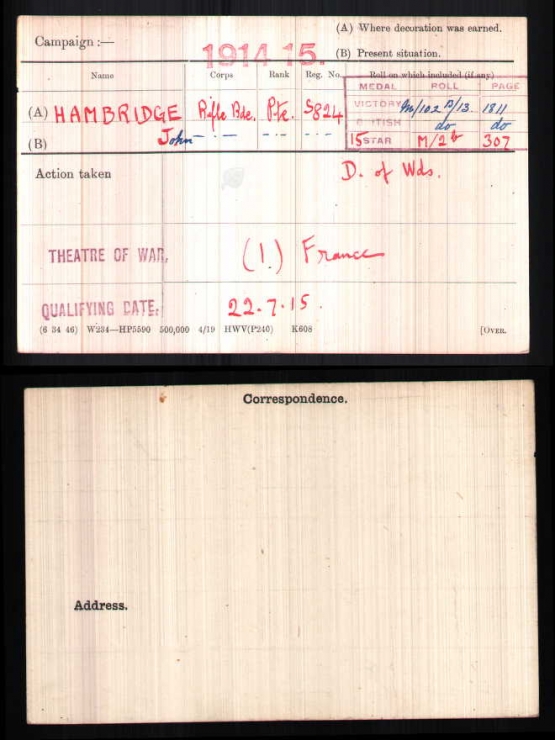 Campaign :—
1914 15.
(A) Where decoration was earned.
(B) Present situation.
Name Corps Rank Reg. No. Roll on which included (if any)
MEDAL ROLL PAGE
(A) HAMBRIDGE Rifle Bde. Pte. S824 VICTORY M/102 B/13 1811
BRITISH do do
(B) John - " - - " - - " - 15 STAR M/2 B 307
Action taken D. of Wds.
THEATRE OF WAR. (1.) France
QUALIFYING DATE. 22.7.15.
(6 34 46) W234—HP5590 500,000 4/19 HWV(P240) K608 [OVER.
Correspondence.
Address.